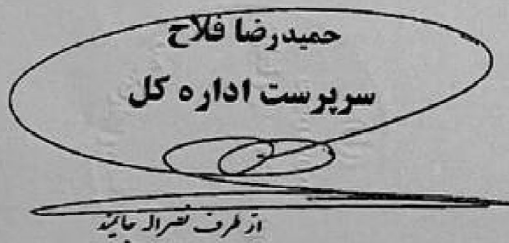 حمیدرضا فلاح
سرپرست اداره کل
از طرف نصراله